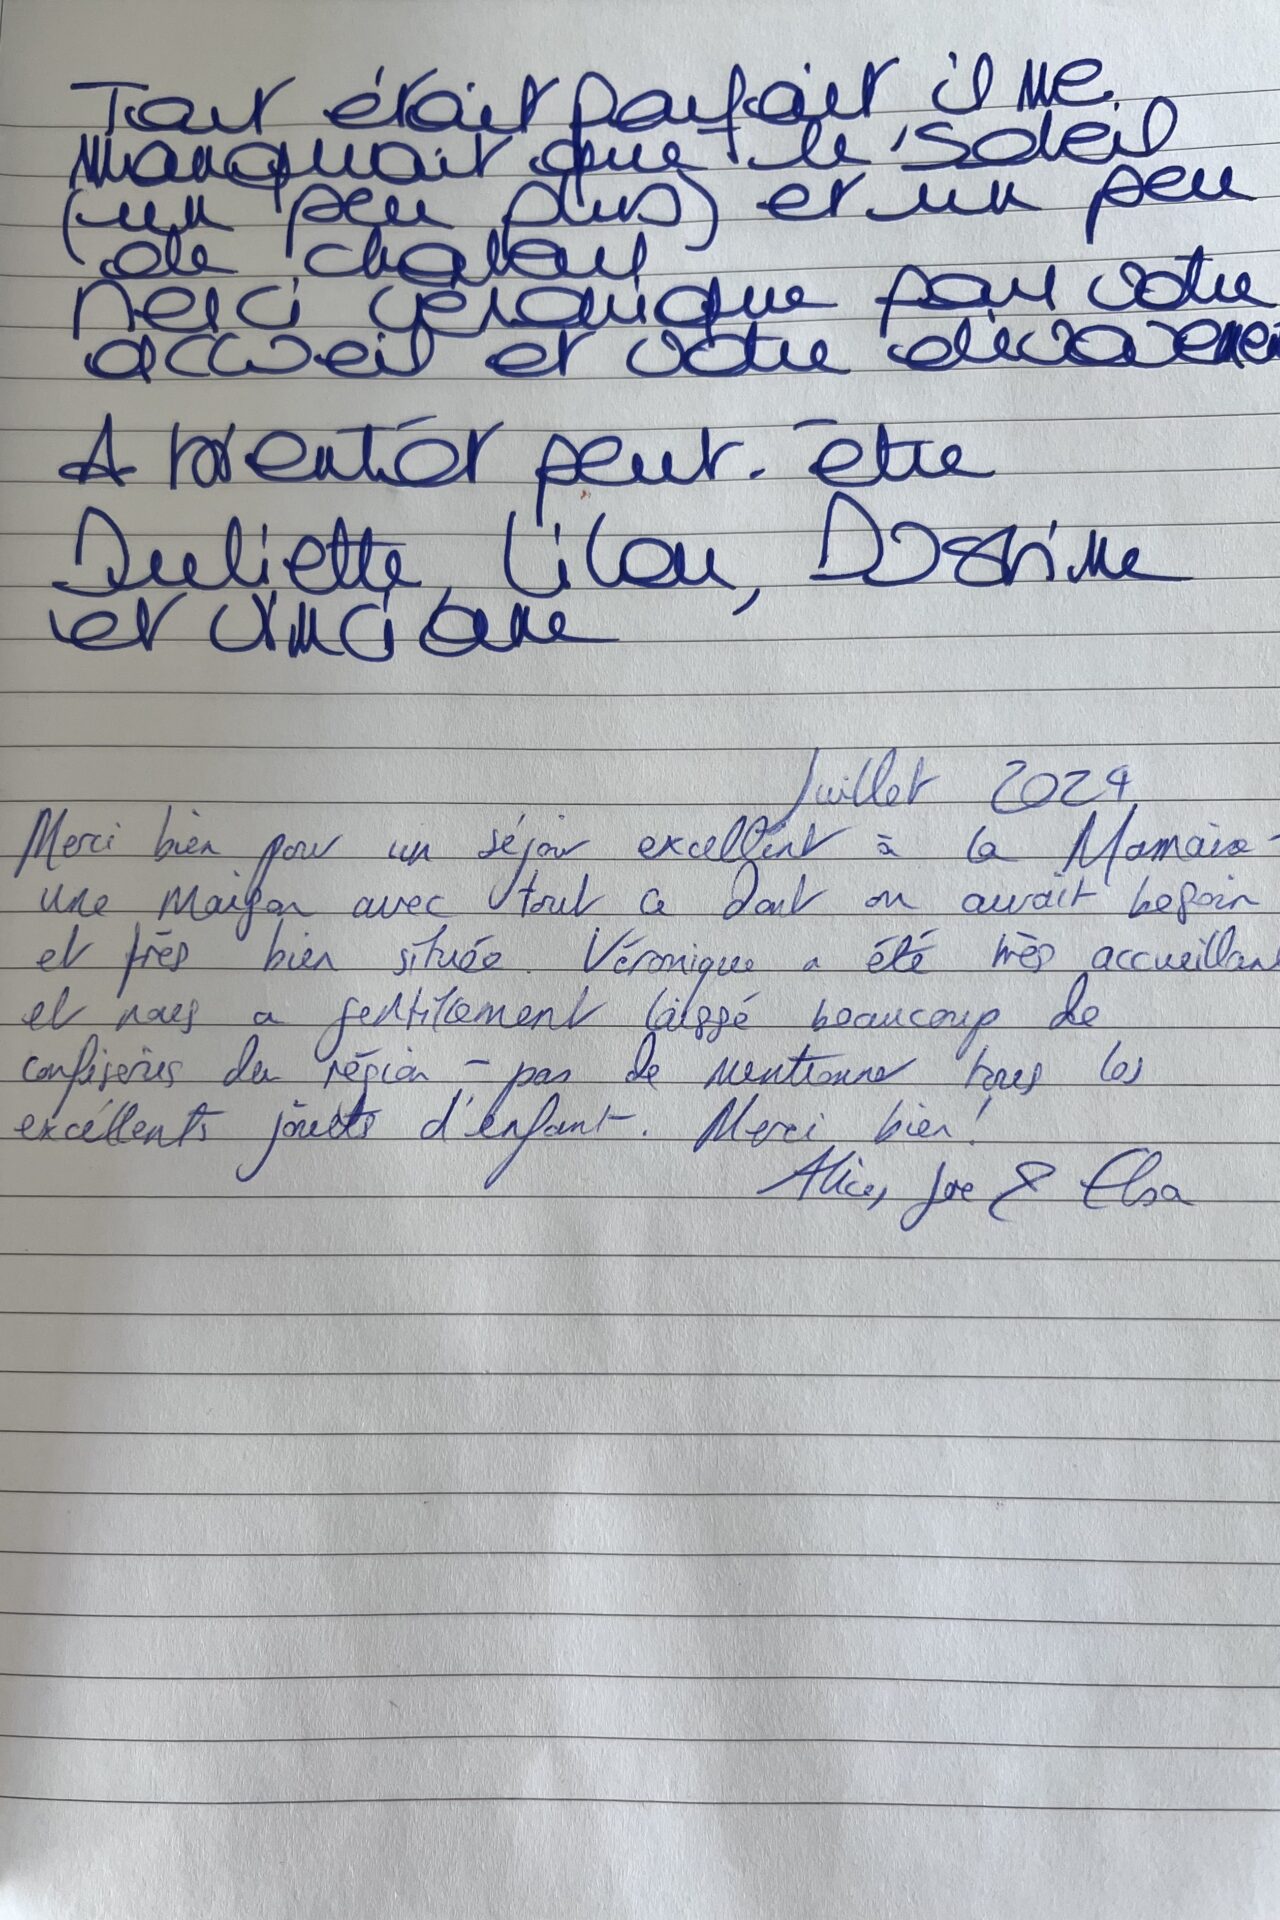 Tout était parfait il ne
manquait que le soleil
(un peu plus) et un peu
de chaleur
Merci Véronique pour votre
accueil et votre dévouemen
A bientôt peut-être
Juliette, Lilou,
et Vinciane
Juillet 2024
Merci bien pour un séjour excellent à la
une maison avec tout ce dont on aurait besoin
et très bien située. Véronique a été très accueillan
et nous a gentillement laissé beaucoup de
confiseries du région - pas de mentionner tous les
excéllents jouets d'enfant. Merci bien!
Alice, Joe & Elsa